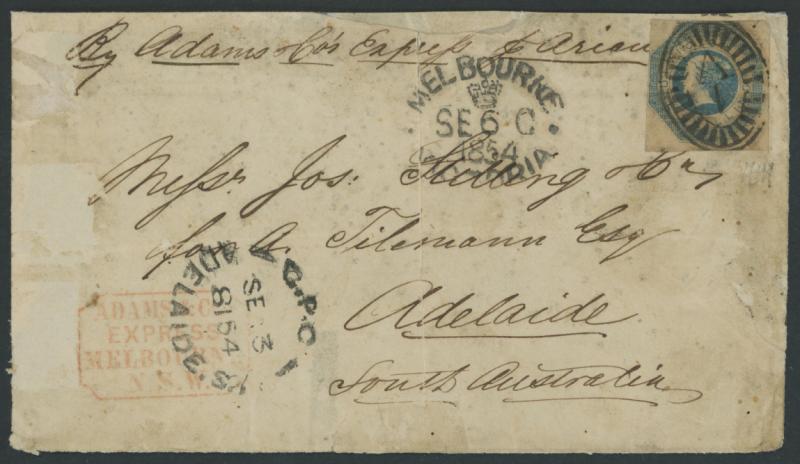 By Adams & Co's Express p Arian
MELBOURNE
SE 6 C
1854
VICTORIA
Messrs Jos: Stilling & Co
for A. Tilemann Esq
Adelaide
South Australia
ADAMS & C
EXPRESS
MELBOURN
N.S.W
G.P.O
SE 3
1854
ADELAIDE